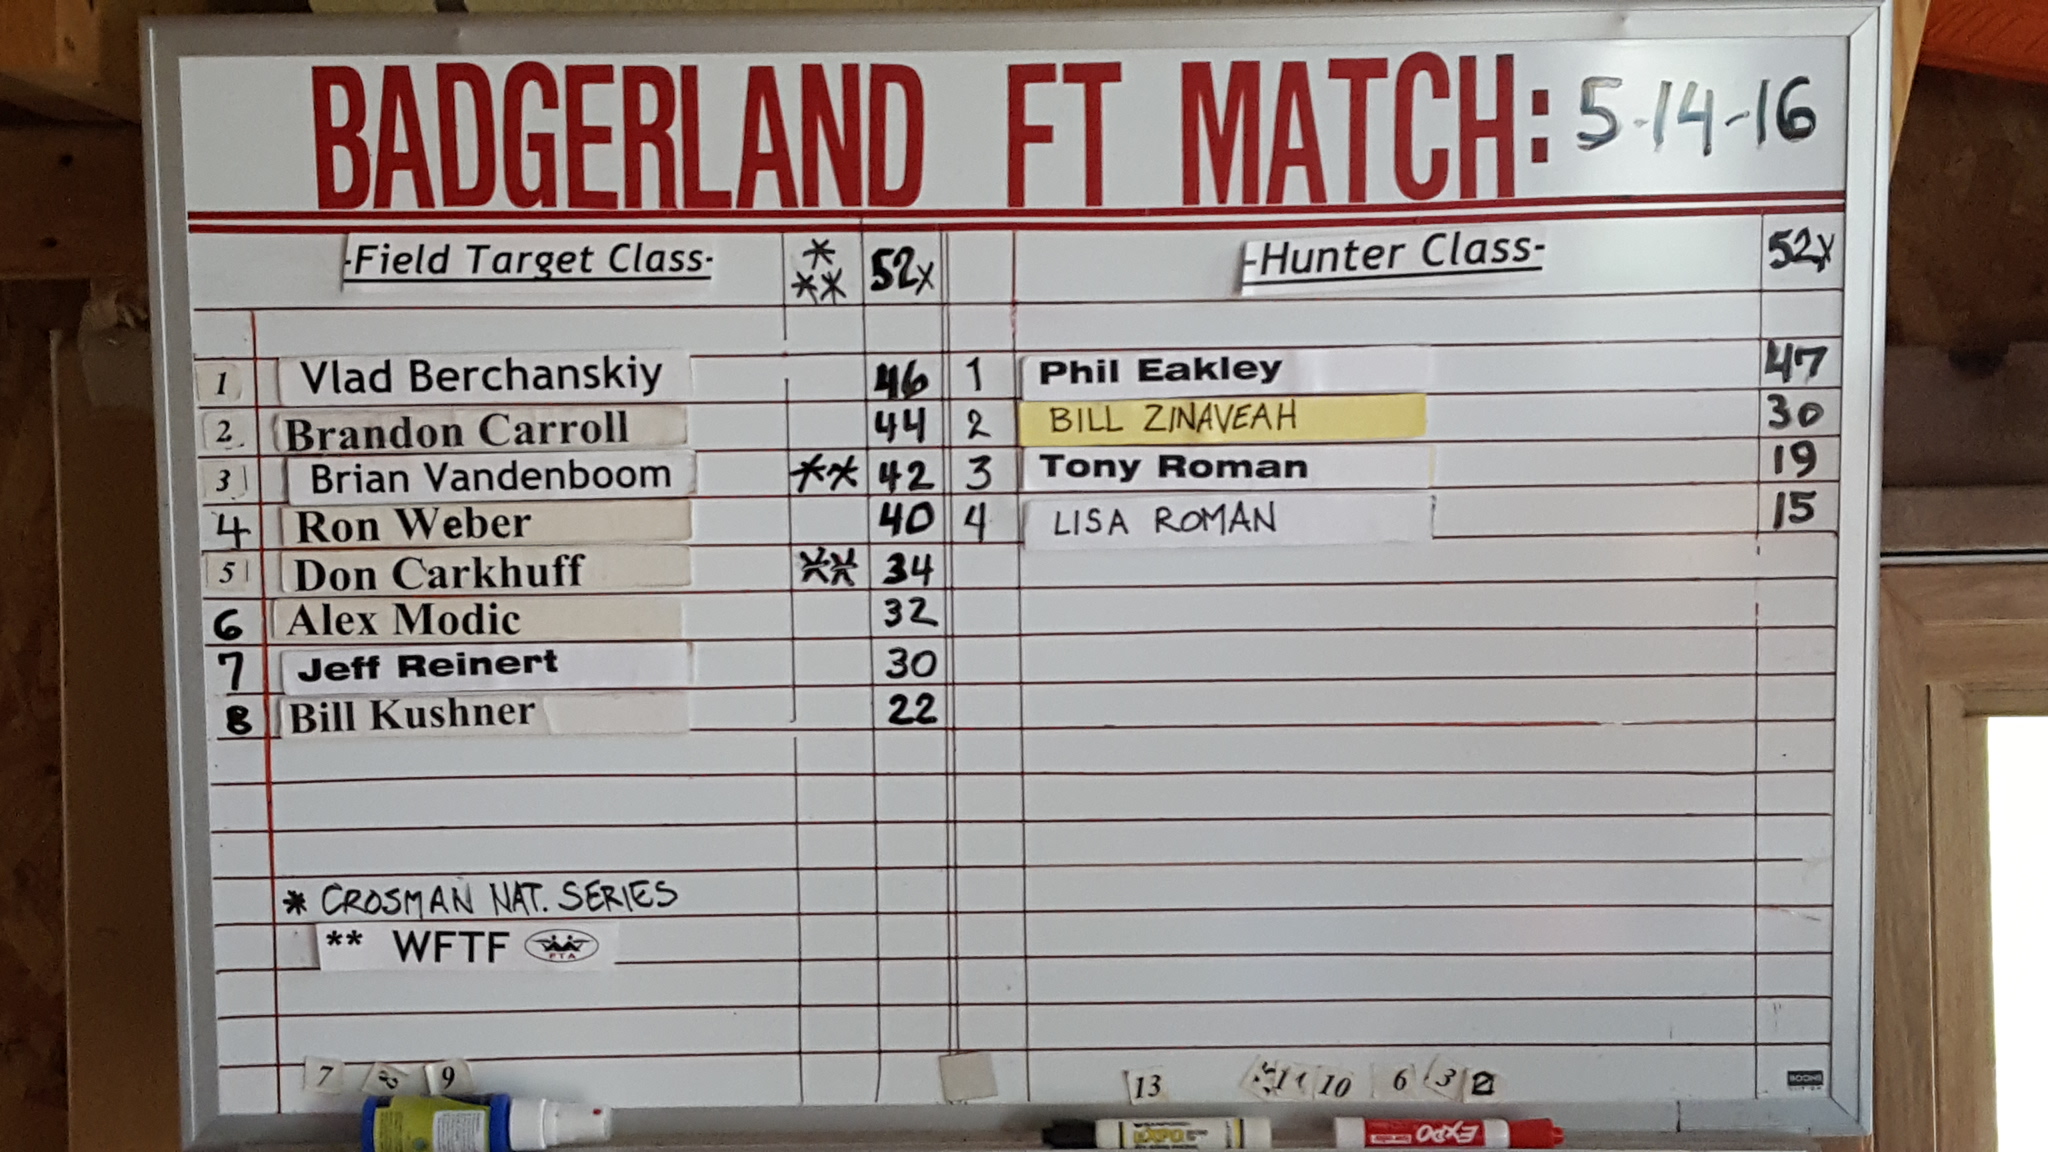 BADGERLAND FT MATCH: 5-14-16
-Field Target Class- * ** 52x
1 Vlad Berchanskiy 46
2 Brandon Carroll 44
3 Brian Vandenboom ** 42
4 Ron Weber 40
5 Don Carkhuff ** 34
6 Alex Modic 32
7 Jeff Reinert 30
8 Bill Kushner 22
* CROSMAN NAT. SERIES
** WFTF FTA
-Hunter Class- 52x
1 Phil Eakley 47
2 BILL ZINAVEAH 30
3 Tony Roman 19
4 LISA ROMAN 15
7 8 9
13 11 10 6 3 2
EXPO
EXPO